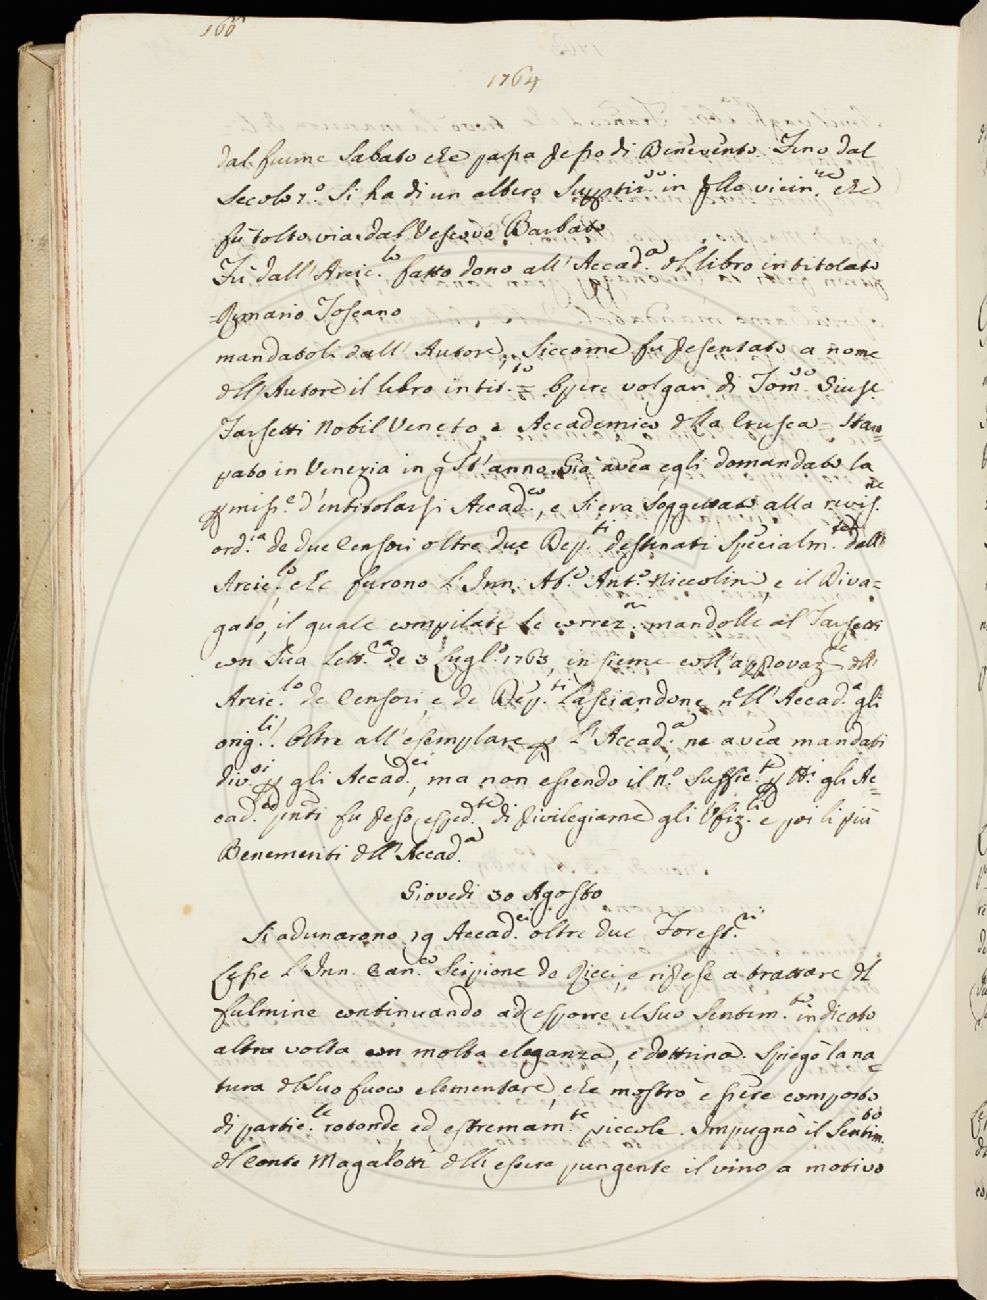 166
1764
dal fiume Sabato che passa presso di Benevento. Fino dal
Secolo 7.º Si ha di un albero Supstiz.so in qllo vicin.ze che
fù tolto via dal Vescovo Barbato
Fù dall'Arcic.lo fatto dono all'Accad.a del libro intitolato
=Rimario Toscano
mandatoli dall'Autore, Siccome fu presentato a nome
dell'Autore il libro intit.to = Opere volgari di Tom.so Giuse.
Farsetti Nobil Veneto, e Accademico della Crusca = Stam=
pato in Venezia in qst'anno. Già avea egli domandato la
pmiss.e d'intitolarsi Accad.co, e Si era Soggettato alla revis.ne
ord.ia de due Censori oltre due Dep.ti destinati Specialm.te dall'
Arcic.lo che furono l'Inn. Ab.e Ant.º Niccolini, e il Diva=
gato, il quale compilate le correz.ni mandolle al Farsetti
con Sua Lett.ra de 3 Lugl.º 1763, insieme coll'approvaz.ne dell'
Arcic.lo de Censori, e de Dep.ti lasciandone nell'Accad.a gli
orig.li. Oltre all'esemplare p l'Accad.a ne avea mandati
div.si p gli Accad.ci, ma non essendo il n.º Suffic.te p tti gli Ac=
cad.ci pnti fu preso esped.te di privilegiarne gli Ufiz.li e poi li più
Benemeriti dell'Accad.a
Giovedì 30 Agosto
Si adunarono 19 Accad.ci oltre due Forest.ri
Lesse l'Inn. Can.co Scipione de Ricci, e riprese a trattare del
fulmine continuando ad esporre il Suo Sentim.to indicato
altra volta con molta eleganza, e dottrina. Spiegò la na=
tura del Suo fuoco elementare, che mostrò essere composto
di partic.le rotonde, ed estremam.te piccole. Impugnò il Sentim.to
del Conte Magalotti dell'essere pungente il vino a motivo